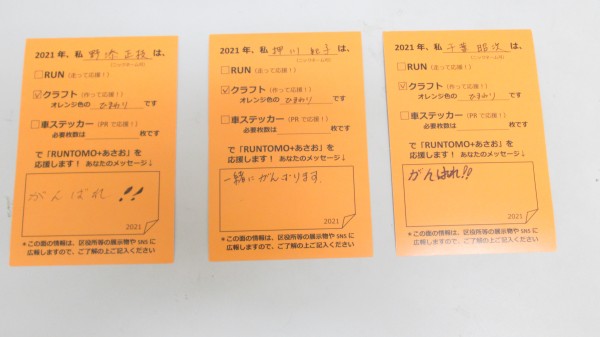 2021年、私 野添 正枝 は、
(ニックネーム可)
□RUN(走って応援!)
☑クラフト(作って応援!)
オレンジ色の ひまわり です
□車ステッカー(PRで応援!)
必要枚数は 枚です
で「RUNTOMO+あさお」を
応援します! あなたのメッセージ↓
がんばれ!!
2021
*この面の情報は、区役所等の展示物やSNSに
広報しますので、ご了解の上ご記入ください
2021年、私 押川 紀子 は、
(ニックネーム可)
□RUN(走って応援!)
☑クラフト(作って応援!)
オレンジ色の ひまわり です
□車ステッカー(PRで応援!)
必要枚数は 枚です
で「RUNTOMO+あさお」を
応援します! あなたのメッセージ↓
一緒にがんばります。
2021
*この面の情報は、区役所等の展示物やSNSに
広報しますので、ご了解の上ご記入ください
2021年、私 千葉 昭次 は、
(ニックネーム可)
□RUN(走って応援!)
☑クラフト(作って応援!)
オレンジ色の ひまわり です
□車ステッカー(PRで応援!)
必要枚数は 枚です
で「RUNTOMO+あさお」を
応援します! あなたのメッセージ↓
がんばれ!!
2021
*この面の情報は、区役所等の展示物やSNSに
広報しますので、ご了解の上ご記入ください